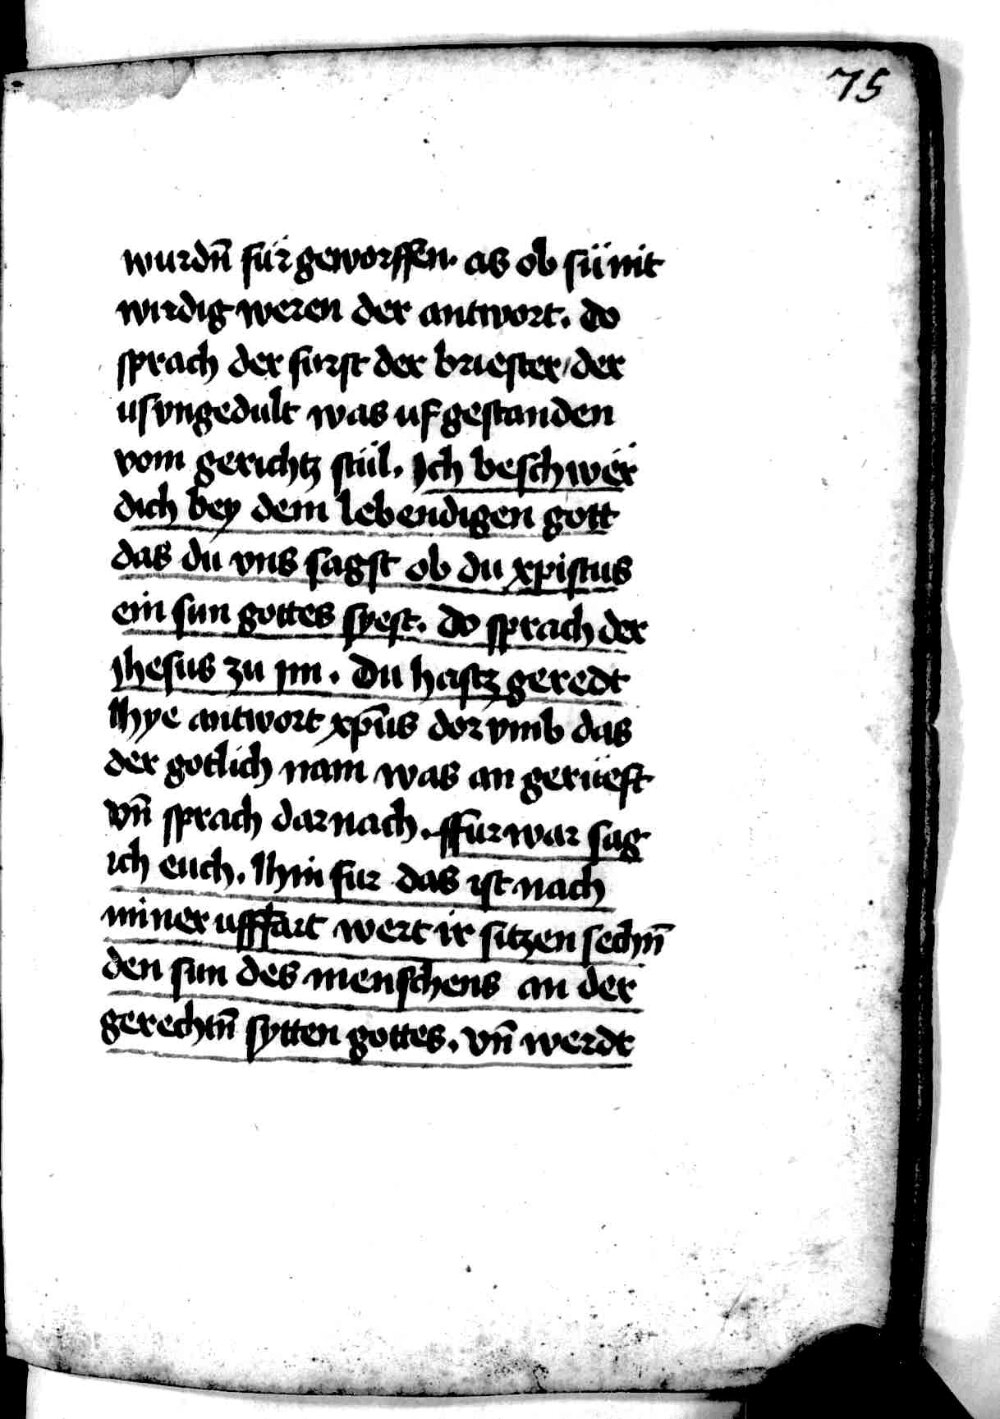 75
wurdn̄ fúr geworffen. as ob sü nit
wirdig weren der antwort. do
sprach der furst der briester / der
us vngedult was uf gestanden
vom gerichtz stül. Ich beschwer
dich bey dem lebendigen gott
das du vns sagst ob du xp̄istus
ein sun gottes syest. do sprach der
Jhesus zu im. Du hastz geredt
Ihye antwort xp̄us dor vmb das
der gotlich nam was an gerüeft
vn̄ sprach dar nach. ffur war sag
ich euch. Ihin fur das ist nach
miner ufffart wert ir sitzen sechn̄
den sun des menschens an der
gerechtn̄ sytten gottes. vn̄ werdt